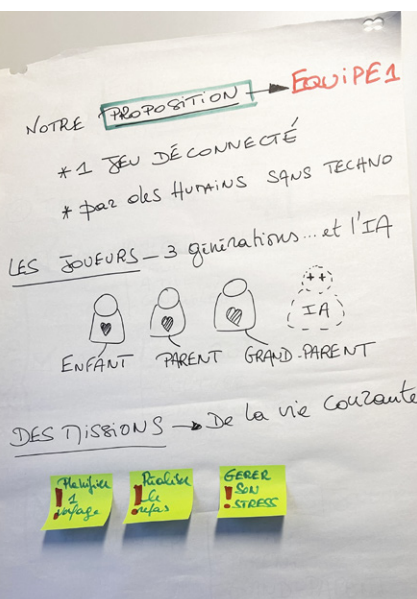 NOTRE PROPOSITION → EQUIPE 1
* 1 JEU DÉCONNECTÉ
* par des HUMAINS SANS TECHNO
LES JOUEURS – 3 générations... et l'IA
++
IA
ENFANT PARENT GRAND-PARENT
DES MISSIONS → De la vie courante
Planifier
! 1
voyage
Réaliser
! le
repas
GERER
! SON
STRESS